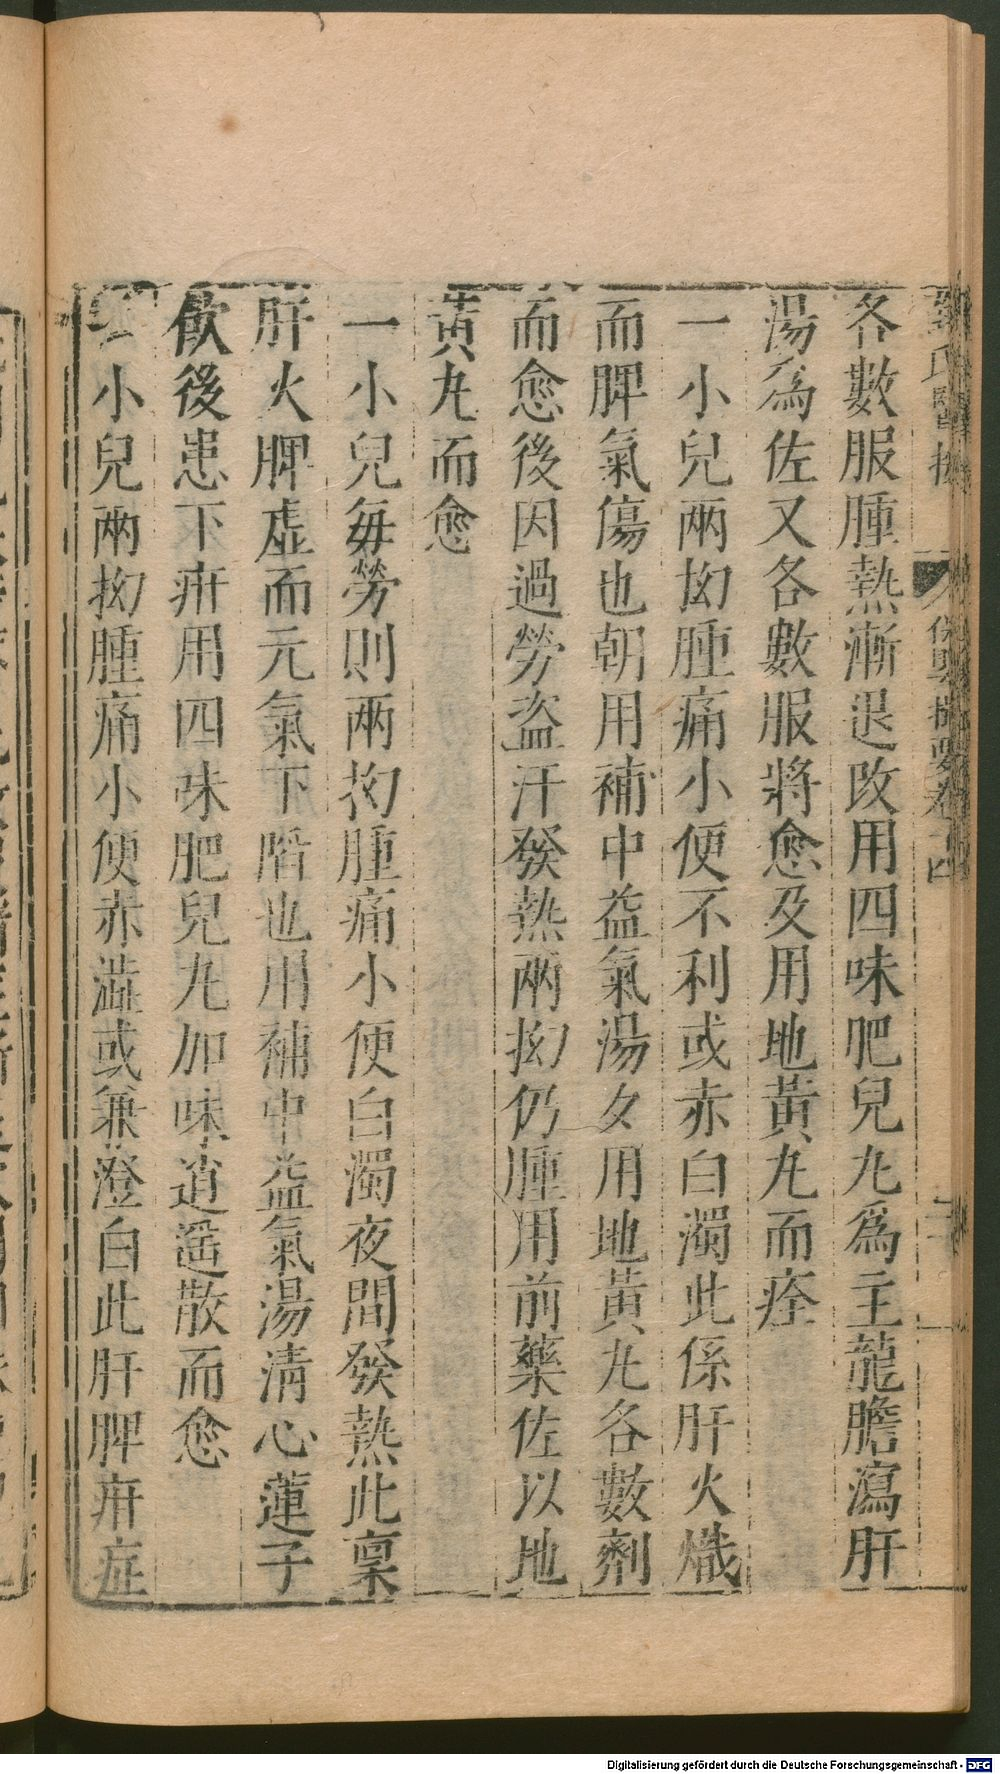 薛氏醫按 保嬰撮要卷十四 二
各數服腫熱漸退改用四味肥兒丸爲主龍膽瀉肝
湯爲佐又各數服將愈及用地黃丸而痊
一小兒兩抝腫痛小便不利或赤白濁此係肝火熾
而脾氣傷也朝用補中益氣湯夕用地黃丸各數劑
而愈後因過勞盗汗發熱兩抝仍腫用前藥佐以地
黃丸而愈
一小兒每勞則兩抝腫痛小便白濁夜間發熱此稟
肝火脾虛而元氣下陷也用補中益氣湯清心蓮子
飲後患下疳用四味肥兒丸加味逍遥散而愈
小兒兩抝腫痛小便赤澁或兼澄白此肝脾疳症
Digitalisierung gefördert durch die Deutsche Forschungsgemeinschaft - DFG